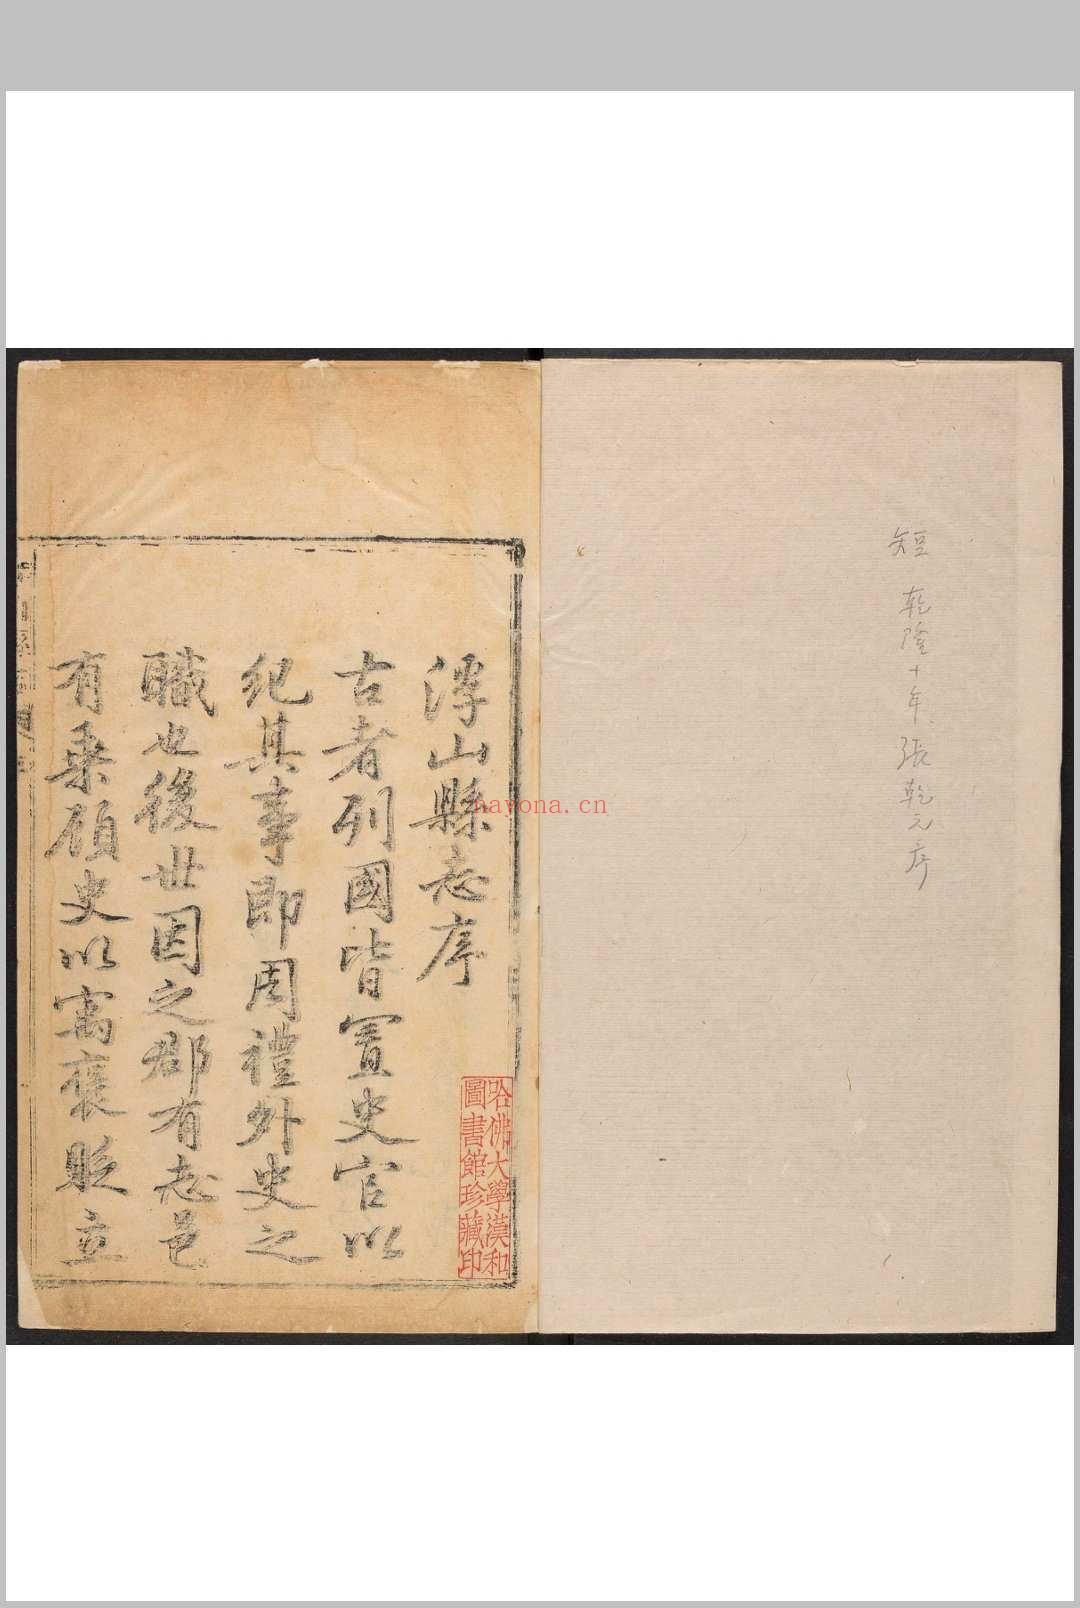 短 乾隆十年 張乾元序
浮山縣志序
古者列國皆置史官以
紀其事即周禮外史之
職也後世因之郡有志邑
有乘顧史以寓褒貶立
哈佛大學漢和
圖書館珍藏印
nayona.cn